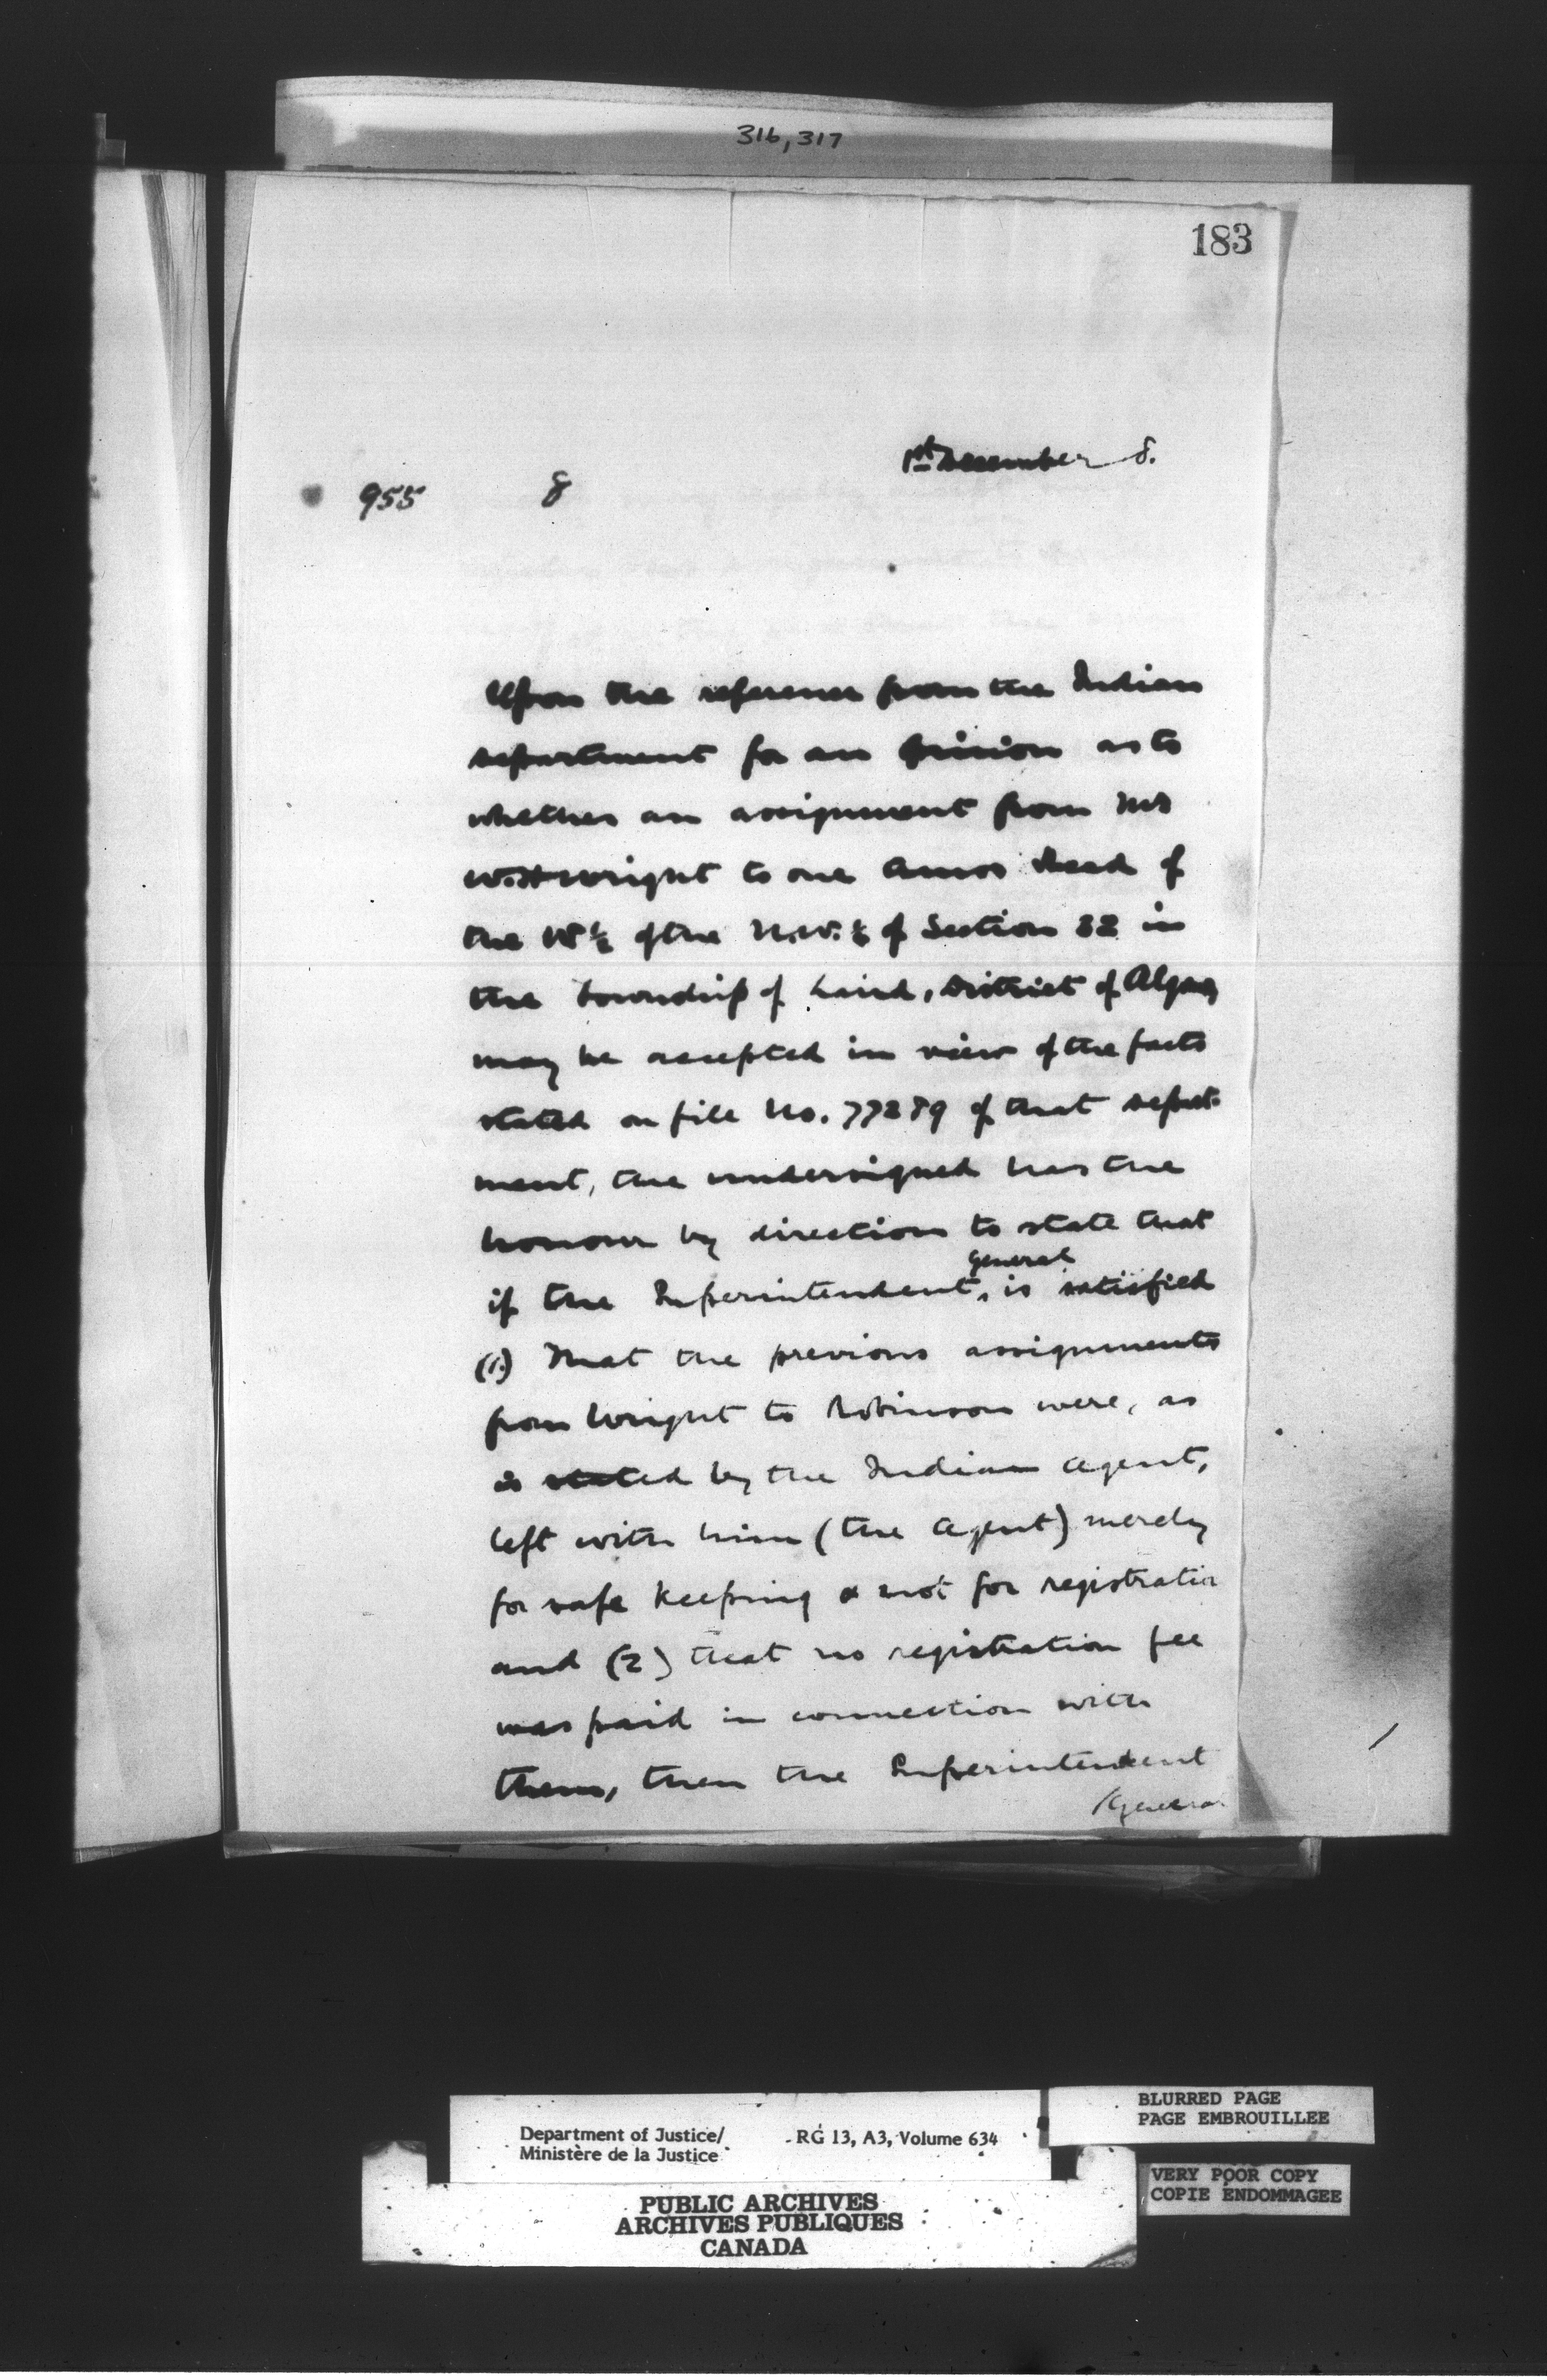 316, 317
183
1st December 8.
955 8
Upon the reference from the Indian
department for an opinion as to
whether an assignment from Mr
W.H. Wright to one Amos Read of
the W½ of the N.W. ¼ of Section 32 in
the township of Laird, District of Algoma
may be accepted in view of the facts
stated on file No. 77289 of that depart-
ment, the undersigned has the
honour by direction to state that
general
if the Superintendent is satisfied
(1.) That the previous assignments
from Wright to Robinson were, as
is stated by the Indian agent,
left with him (the agent) merely
for safe keeping & not for registration
and (2) that no registration fee
was paid in connection with
them, then the Superintendent
/General
Department of Justice/
Ministère de la Justice
RG 13, A3, Volume 634
BLURRED PAGE
PAGE EMBROUILLEE
VERY POOR COPY
COPIE ENDOMMAGEE
PUBLIC ARCHIVES
ARCHIVES PUBLIQUES
CANADA